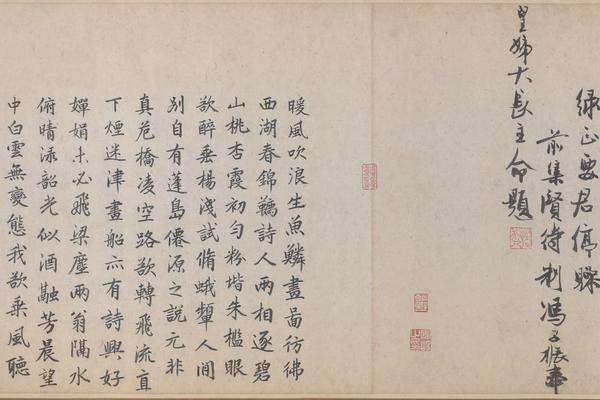 綠正要君停驂
前集賢待制馮子振奉
皇姊大長主命題
暖風吹浪生魚鱗畫啚彷彿
西湖春錦韉詩人兩相逐碧
山桃杏霞初勻粉堦朱檻眼
欲醉垂楊淺試脩蛾顰人間
別自有蓬島僊源之說元非
真危橋凌空路欲轉飛流直
下煙迷津畫船亦有詩興好
嬋娟未必飛梁塵兩翁隔水
俯晴淥韶光似酒融芳晨望
中白雲無變態我欲乘風聽